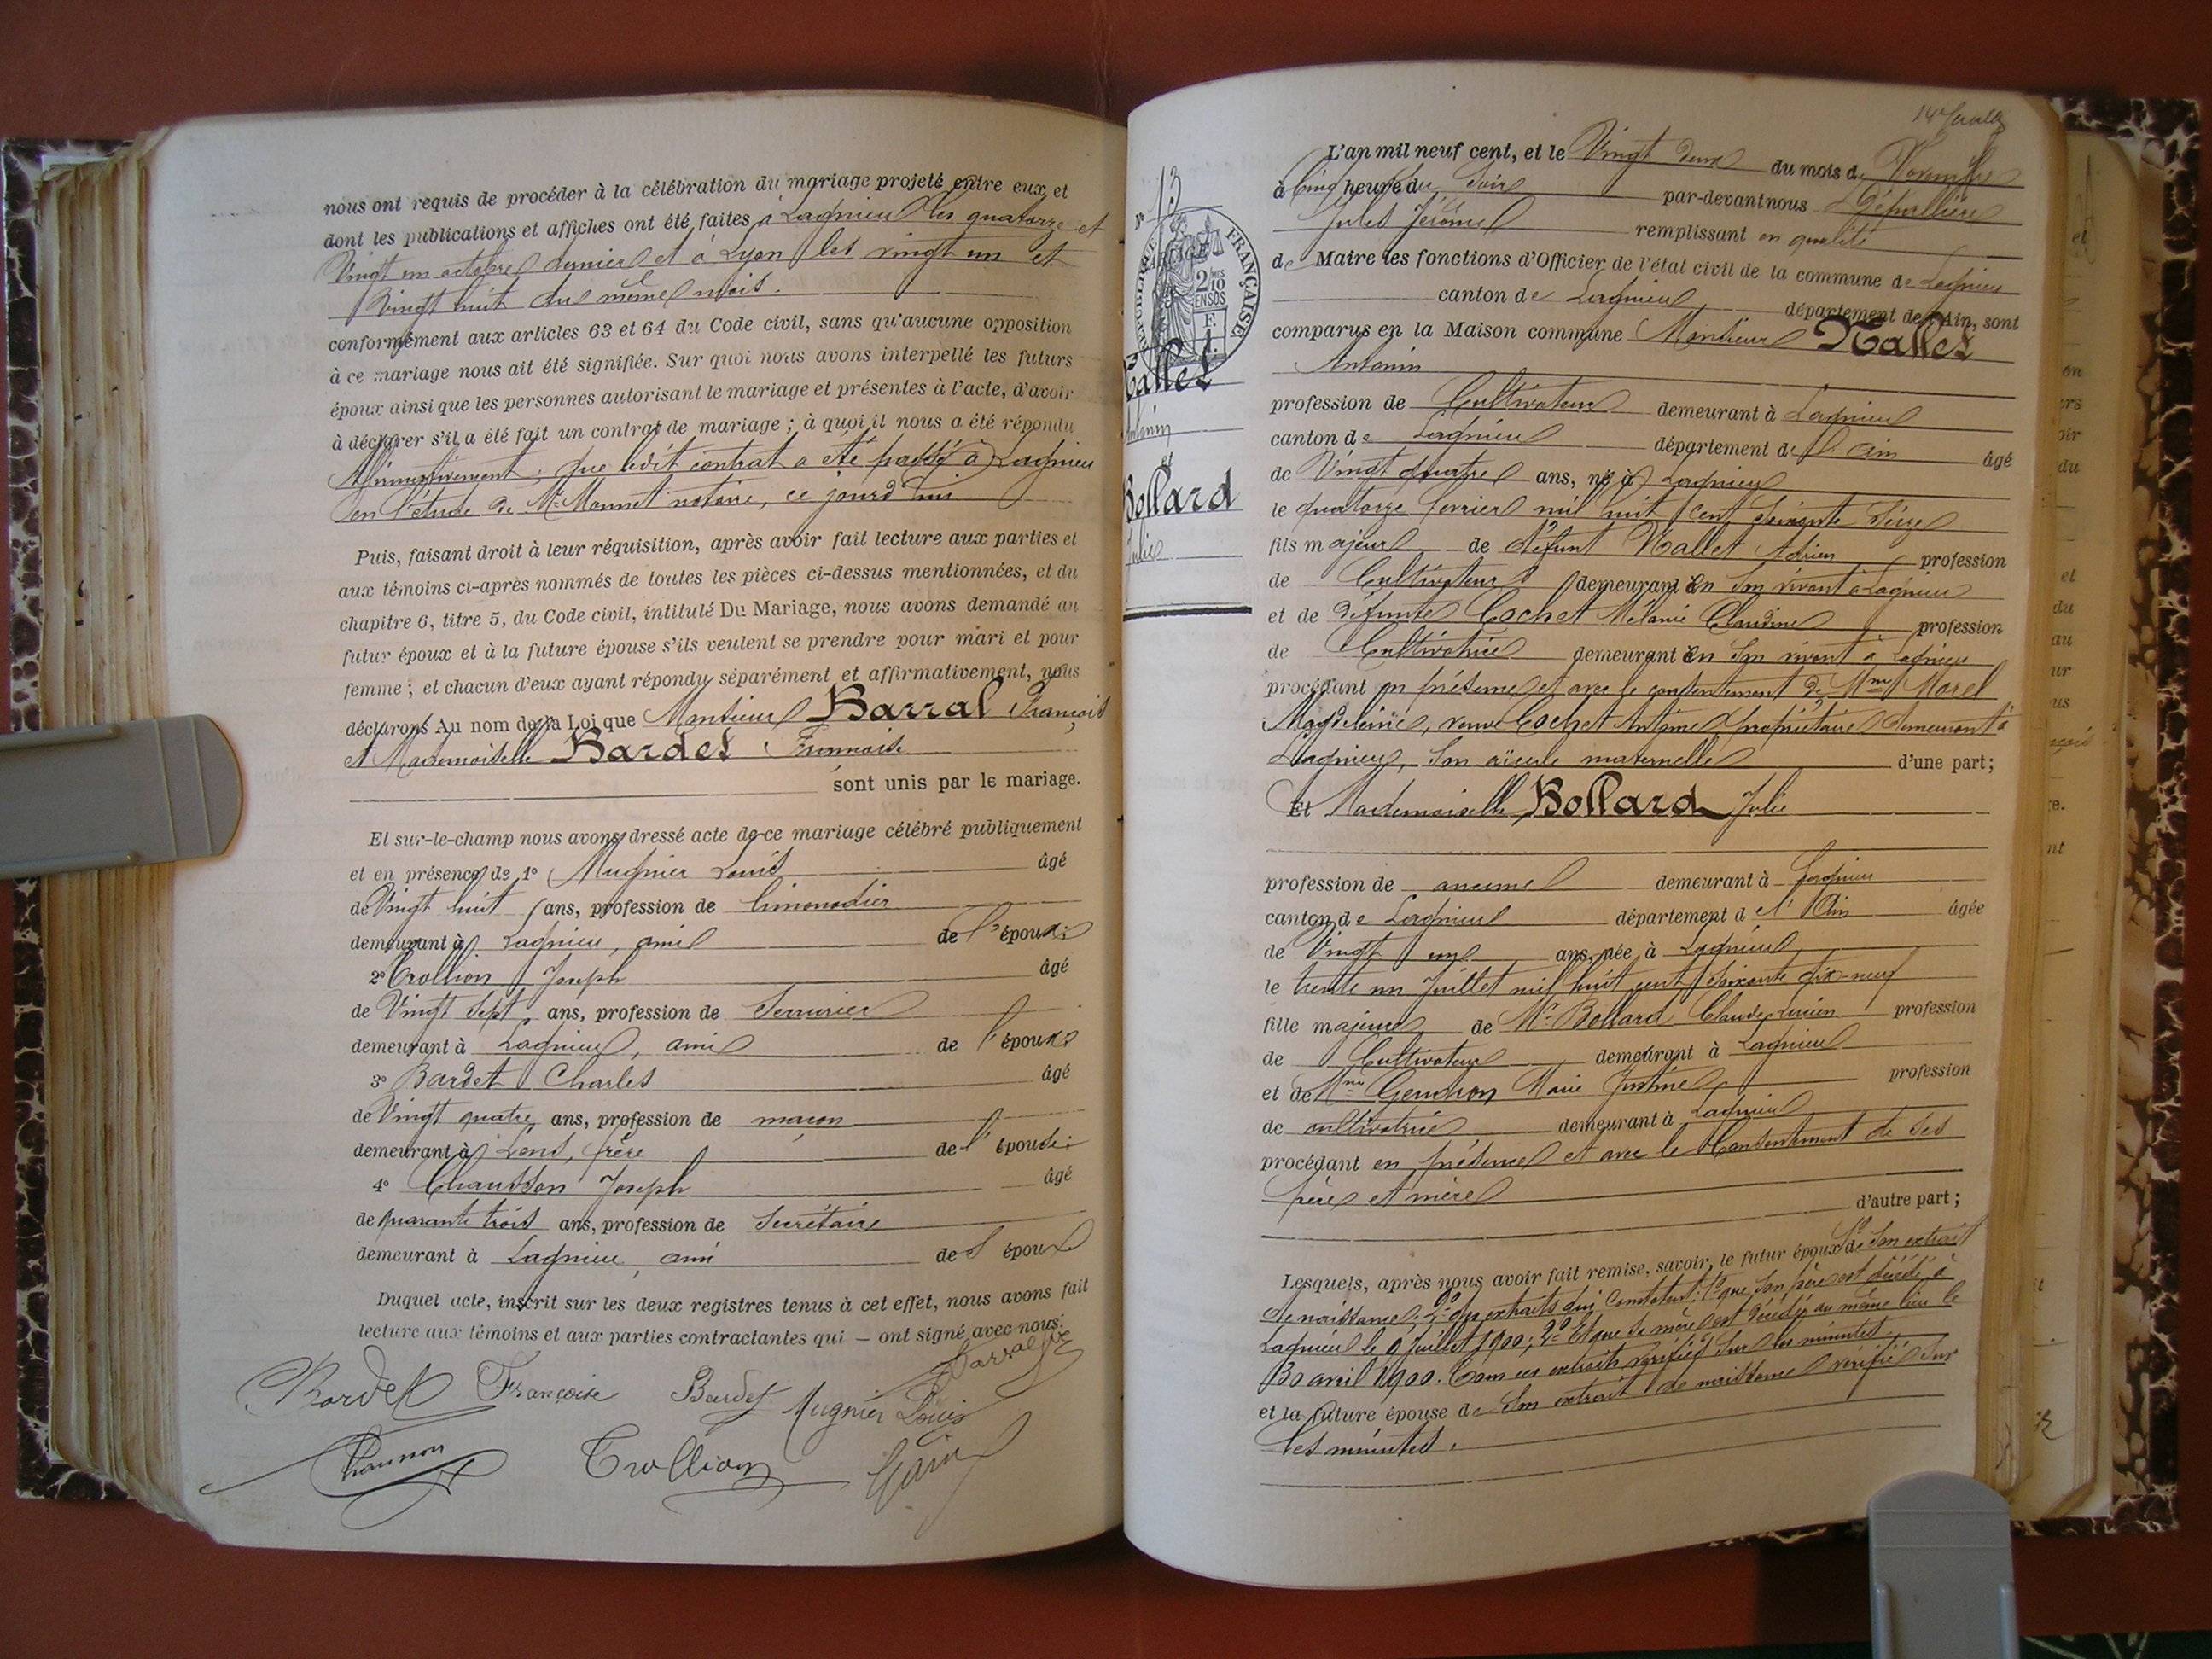 nous ont requis de procéder à la célébration du mariage projeté entre eux, et
dont les publications et affiches ont été faites à Lagnieu les quatorze et
Vingt un octobre dernier et à Lyon les vingt un et
Vingt huit du même mois.
conformément aux articles 63 et 64 du Code civil, sans qu'aucune opposition
à ce mariage nous ait été signifiée. Sur quoi nous avons interpellé les futurs
époux ainsi que les personnes autorisant le mariage et présentes à l'acte, d'avoir
à déclarer s'il a été fait un contrat de mariage ; à quoi il nous a été répondu
Affirmativement ; que ledit contrat a été passé à Lagnieu
en l'étude de Me Monnet notaire, ce jourd'hui
Puis, faisant droit à leur réquisition, après avoir fait lecture aux parties et
aux témoins ci-après nommés de toutes les pièces ci-dessus mentionnées, et du
chapitre 6, titre 5, du Code civil, intitulé Du Mariage, nous avons demandé au
futur époux et à la future épouse s'ils veulent se prendre pour mari et pour
femme ; et chacun d'eux ayant répondu séparément et affirmativement, nous
déclarons Au nom de la Loi que Monsieur Barral François
et Mademoiselle Bardet Françoise
sont unis par le mariage.
Et sur-le-champ nous avons dressé acte de ce mariage célébré publiquement
et en présence de 1° Mugnier Louis âgé
de Vingt huit ans, profession de limonadier
demeurant à Lagnieu, ami de l'époux;
2° Trollion Joseph âgé
de Vingt sept ans, profession de Serrurier
demeurant à Lagnieu, ami de l'époux;
3° Bardet Charles âgé
de Vingt quatre ans, profession de maçon
demeurant à Lens, frère de l'épouse;
4° Chausson Joseph âgé
de quarante trois ans, profession de Secrétaire
demeurant à Lagnieu, ami de l'époux
Duquel acte, inscrit sur les deux registres tenus à cet effet, nous avons fait
lecture aux témoins et aux parties contractantes qui — ont signé avec nous.
Barral
Bardet Françoise Bardet Mugnier Louis
Chausson Trollion
14e
N° 13
RÉPUBLIQUE FRANÇAISE
2 10 EN SUS
Nallet
Antonin
et
Bollard
Julie
L'an mil neuf cent, et le Vingt deux du mois de Novembre
à Cinq heure du Soir par-devant nous
Jules Jérôme remplissant en qualité
de Maire les fonctions d'Officier de l'état civil de la commune de Lagnieu
canton de Lagnieu département de l'Ain, sont
comparus en la Maison commune Monsieur Nallet
Antonin
profession de Cultivateur demeurant à Lagnieu
canton de Lagnieu département de l'Ain âgé
de Vingt quatre ans, né à Lagnieu
le quatorze février mil huit cent soixante seize
fils majeur de défunt Nallet Adrien profession
de Cultivateur demeurant en son vivant à Lagnieu
et de défunte Cochet Mélanie Claudine profession
de Cultivatrice demeurant en son vivant à Lagnieu
procédant en présence et avec le consentement de Mme Morel
Magdeleine, veuve Cochet Antoine, propriétaire demeurant à
Lagnieu, son aïeule maternelle d'une part;
Et Mademoiselle Bollard Julie
profession de aucune demeurant à Lagnieu
canton de Lagnieu département de l'Ain âgée
de Vingt un ans, née à Lagnieu
le trente un Juillet mil huit cent soixante dix-neuf
fille majeure de Mr Bollard Claude Lucien profession
de Cultivateur demeurant à Lagnieu
et de Mme Genchon Marie Justine profession
de cultivatrice demeurant à Lagnieu
procédant en présence et avec le Consentement de ses
père et mère d'autre part ;
Lesquels, après nous avoir fait remise, savoir, le futur époux 1° de son extrait
de naissance; 2° des extraits qui constatent: 1° que son père est décédé à
Lagnieu le 9 Juillet 1900; 2° Et que sa mère est décédée au même lieu le
30 avril 1900. Tous ces extraits vérifiés sur les minutes;
et la future épouse de son extrait de naissance vérifié sur
les minutes.